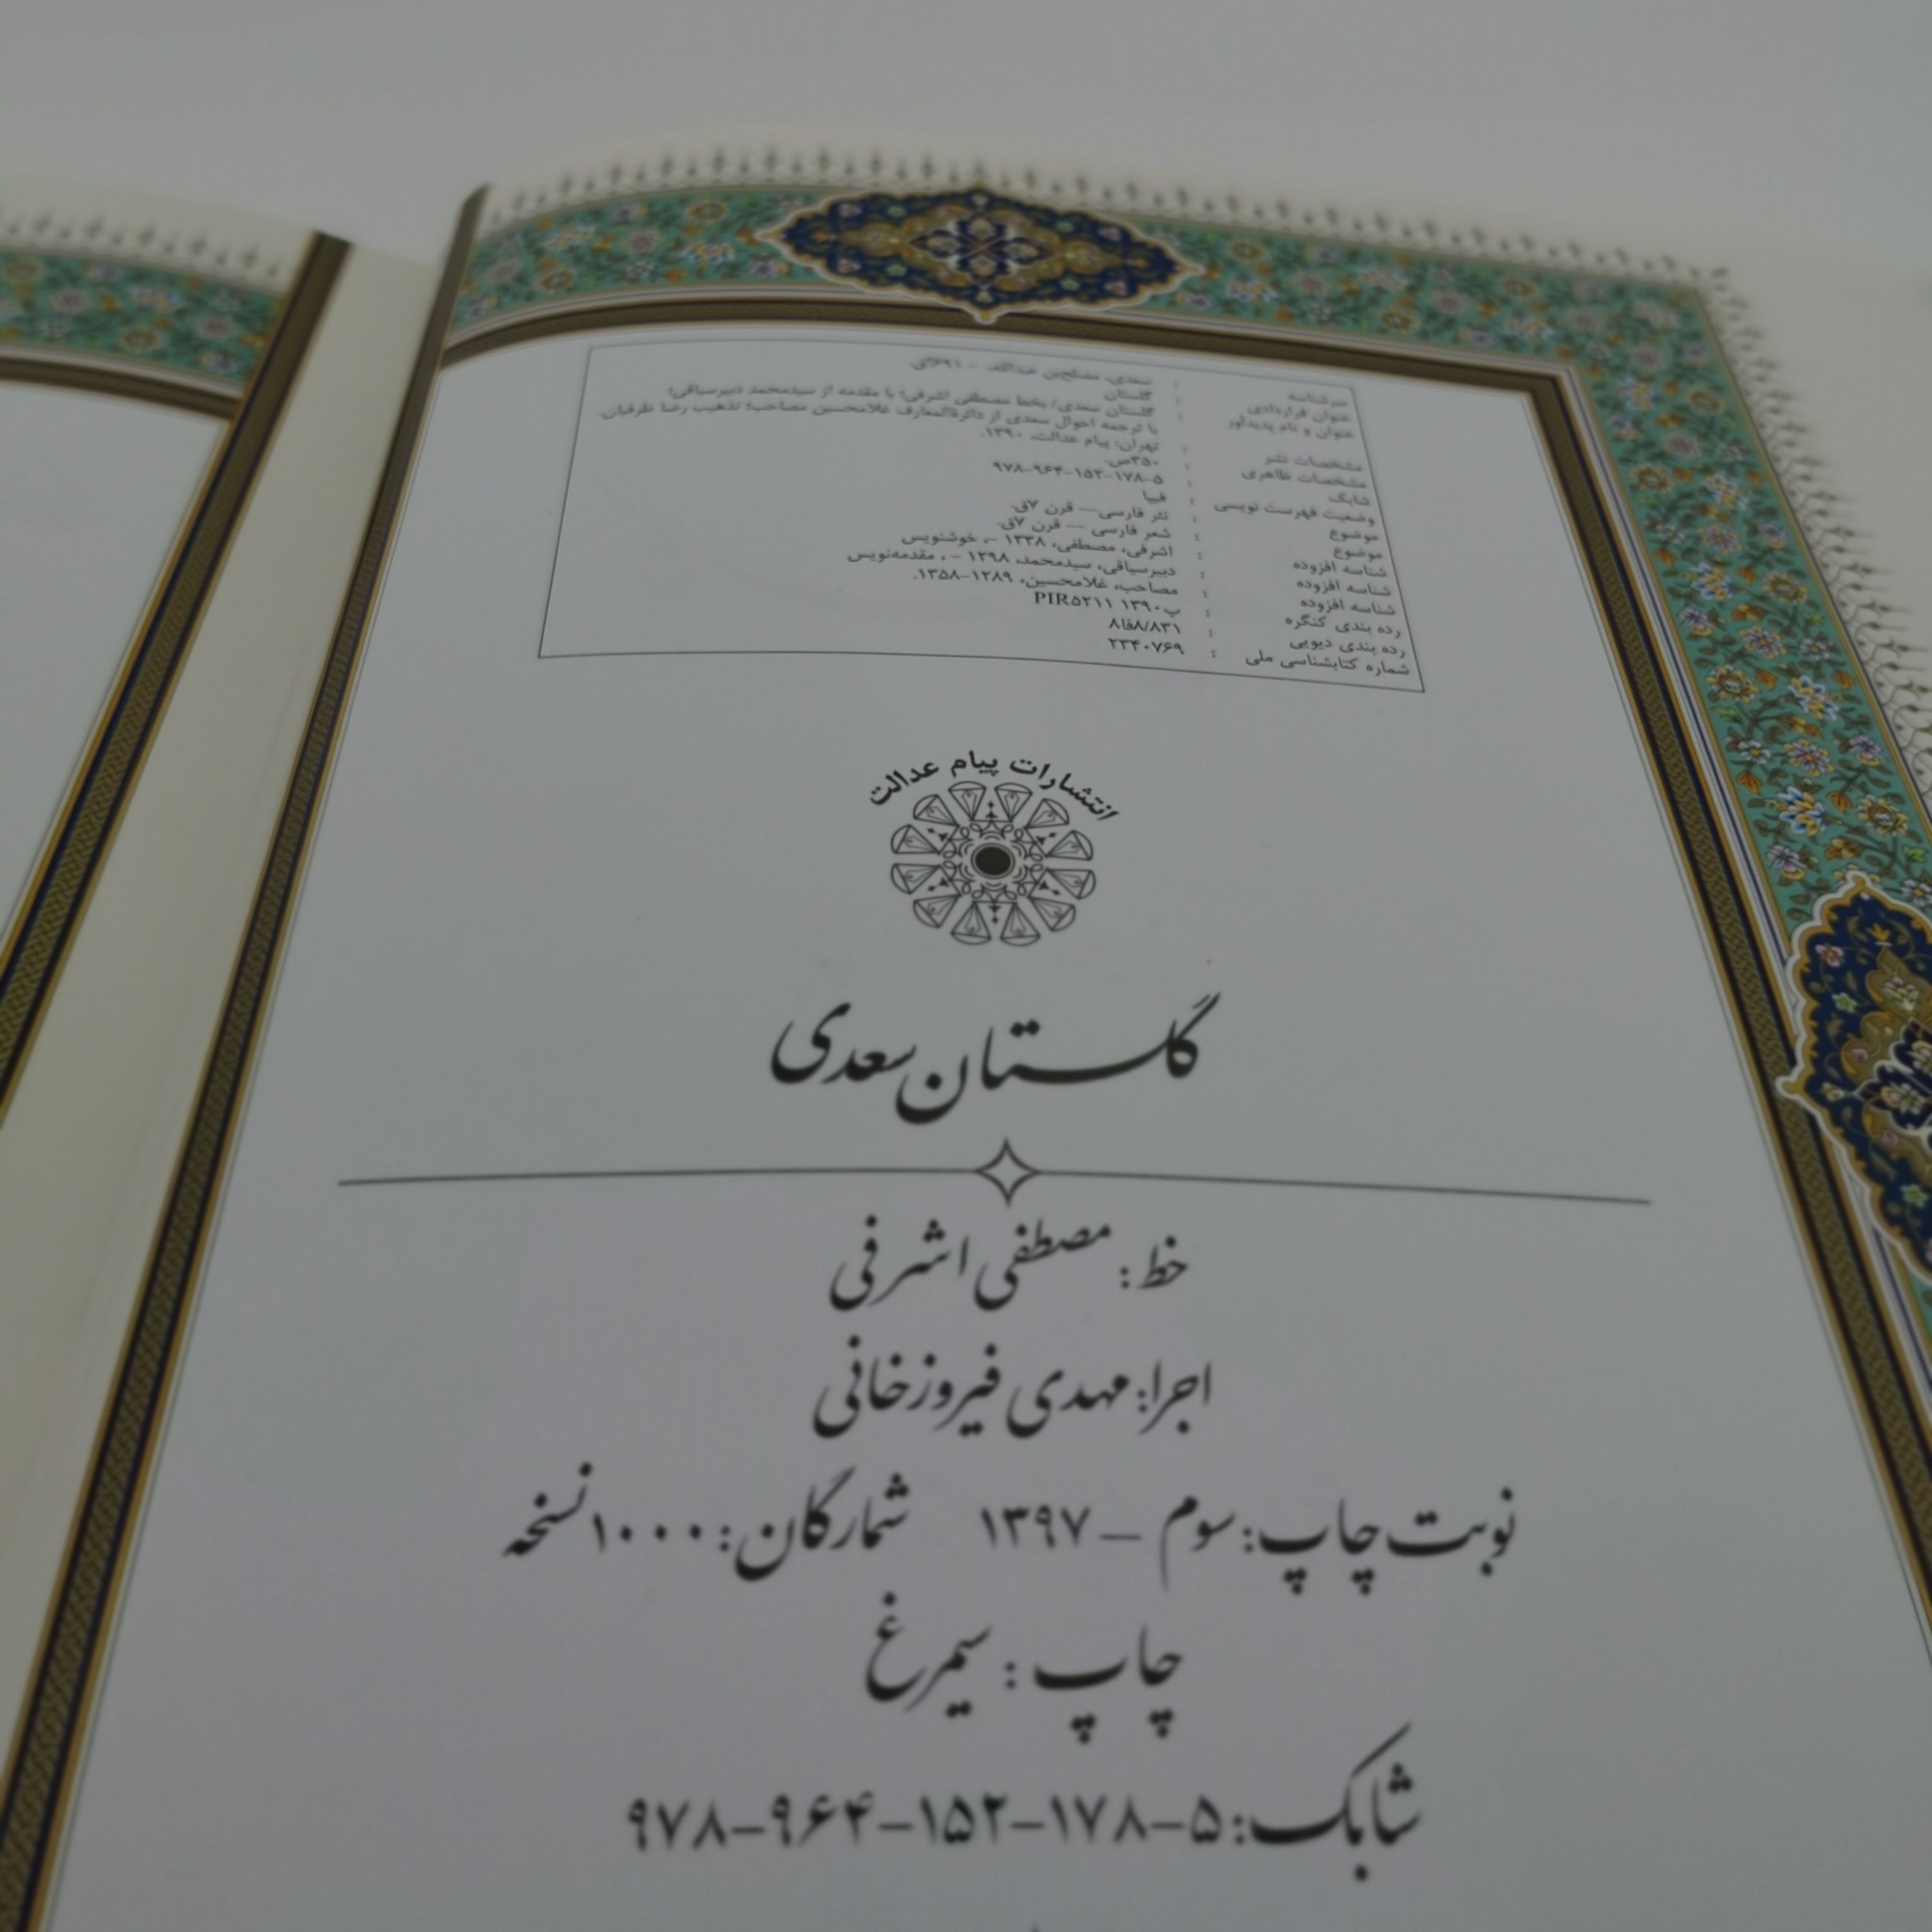 سرشناسه : سعدی، مصلح‌بن عبدالله، - ۶۹۱؟ق.
عنوان قراردادی : گلستان
عنوان و نام پدیدآور : گلستان سعدی/ بخط مصطفی اشرفی؛ با مقدمه از سیدمحمد دبیرسیاقی؛
با ترجمه احوال سعدی از دائرةالمعارف غلامحسین مصاحب؛ تذهیب رضا ظرفیان.
مشخصات نشر : تهران: پیام عدالت، ۱۳۹۰.
مشخصات ظاهری : ۳۵۰ص.
شابک : ۹۷۸-۹۶۴-۱۵۲-۱۷۸-۵
وضعیت فهرست نویسی : فیپا
موضوع : نثر فارسی — قرن ۷ق.
موضوع : شعر فارسی — قرن ۷ق.
شناسه افزوده : اشرفی، مصطفی، ۱۳۳۸ -، خوشنویس
شناسه افزوده : دبیرسیاقی، سیدمحمد، ۱۲۹۸ - ، مقدمه‌نویس
شناسه افزوده : مصاحب، غلامحسین، ۱۲۸۹-۱۳۵۸.
رده بندی کنگره : PIR۵۲۱۱ پ۱۳۹۰
رده بندی دیویی : ۸فا۸/۸۳۱
شماره کتابشناسی ملی : ۲۳۴۰۷۶۹
انتشارات پیام عدالت
گلستان سعدی
خط: مصطفی اشرفی
اجرا: مهدی فیروزخانی
نوبت چاپ: سوم – ۱۳۹۷ شمارگان: ۱۰۰۰ نسخه
چاپ: سیمرغ
شابک: ۵-۱۷۸-۱۵۲-۹۶۴-۹۷۸